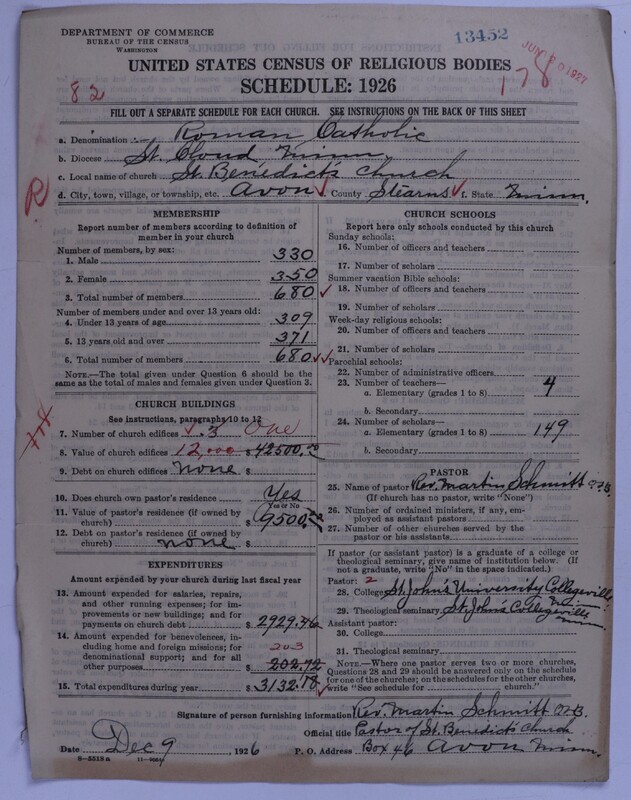 DEPARTMENT OF COMMERCE
BUREAU OF THE CENSUS
WASHINGTON
13452
JUN 20 1927
UNITED STATES CENSUS OF RELIGIOUS BODIES
SCHEDULE: 1926
82
178
FILL OUT A SEPARATE SCHEDULE FOR EACH CHURCH. SEE INSTRUCTIONS ON THE BACK OF THIS SHEET
a. Denomination Roman Catholic
b. Diocese St. Cloud, Minn
c. Local name of church St. Benedict's Church
R
d. City, town, village, or township, etc. Avon County Stearns f. State Minn.
MEMBERSHIP
Report number of members according to definition of member in your church
Number of members, by sex:
1. Male 330
2. Female 350
3. Total number of members 680
Number of members under and over 13 years old:
4. Under 13 years of age 309
5. 13 years old and over 371
6. Total number of members 680
NOTE.—The total given under Question 6 should be
same as the total of males and females given under Question 3.
CHURCH BUILDINGS
See instructions, paragraphs 10 to 12
7. Number of church edifices 3 One
8. Value of church edifices 12,000 $ 42500.00
9. Debt on church edifices none $
10. Does church own pastor's residence Yes
Yes or No
11. Value of pastor's residence (if owned by
church) $ 9500.00
12. Debt on pastor's residence (if owned by
church) none $
EXPENDITURES
Amount expended by your church during last fiscal year
13. Amount expended for salaries, repairs,
and other running expenses; for im-
provements or new buildings; and for
payments on church debt $ 2929.46
14. Amount expended for benevolences, in-
cluding home and foreign missions; for
denominational support; and for all
other purposes 203
$ 202.72
15. Total expenditures during year $ 3132.18
CHURCH SCHOOLS
Report here only schools conducted by this church
Sunday schools:
16. Number of officers and teachers
17. Number of scholars
Summer vacation Bible schools:
18. Number of officers and teachers
19. Number of scholars
Week-day religious schools:
20. Number of officers and teachers
21. Number of scholars
Parochial schools:
22. Number of administrative officers
23. Number of teachers—
a. Elementary (grades 1 to 8) 4
b. Secondary
24. Number of scholars—
a. Elementary (grades 1 to 8) 149
b. Secondary
PASTOR
25. Name of pastor Rev. Martin Schmitt O.S.B.
(If church has no pastor, write "None")
26. Number of ordained ministers, if any, em-
ployed as assistant pastors
27. Number of other churches served by the
pastor or his assistants
If pastor (or assistant pastor) is a graduate of a college or
theological seminary, give name of institution below. (If
not a graduate, write "No" in the space indicated.)
Pastor: 2
28. College St. John's University Collegeville
Minn
29. Theological seminary St. John's Collegeville
Minn.
Assistant pastor:
30. College
31. Theological seminary
NOTE.—Where one pastor serves two or more churches,
Questions 28 and 29 should be answered only on the schedule
for one of the churches; on the schedules for the other churches,
write "See schedule for church."
Signature of person furnishing information Rev. Martin Schmitt O.S.B.
Official title Pastor of St. Benedict's Church
Date Dec 9, 1926 P. O. Address Box 46 Avon Minn.